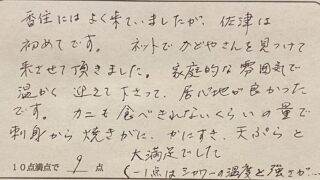 香住にはよく来ていましたが、佐津は
初めてです。 ネットでかどやさんを見つけて
来させて頂きました。 家庭的な雰囲気で
温かく 迎えて下さって、居心地が良かった
です。 カニも食べきれないくらいの量で
刺身から焼きがに、かにすき、天ぷらと
大満足でした
10点満点で 9 点
(−1点はシャワーの温度と強さが…